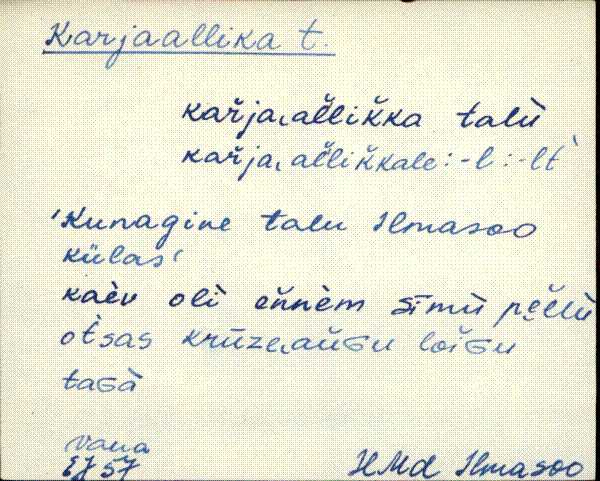 Karjaallika t.
kar̆ja‿al̆lik̆ka talù
kar̆ja‿al̆lik̆kale : -l : -lt̀
'Kunagine talu Ilmasoo
külas'
kaèv olì en̆nèm sīmù pĕl̆lù
ot̀sas krūze‿aŭɢu loĭɢu
taɢà
vana
EJ 57
HMd Ilmasoo